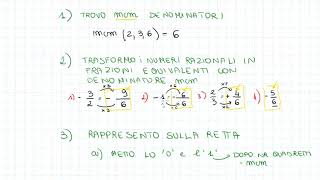 1) TROVO mcm DENOMINATORI
mcm (2,3,6) = 6
2) TRASFORMO I NUMERI RAZIONALI IN
FRAZIONI EQUIVALENTI CON
DENOMINATORE mcm
a) - 3/2 = - 9/6 -1 = - 6/6 2/3 = + 4/6 d) - 5/6
x3 x2
x3 x2
3) RAPPRESENTO SULLA RETTA
a) METTO LO '0' E L'1' DOPO QUADRETTI
= mcm